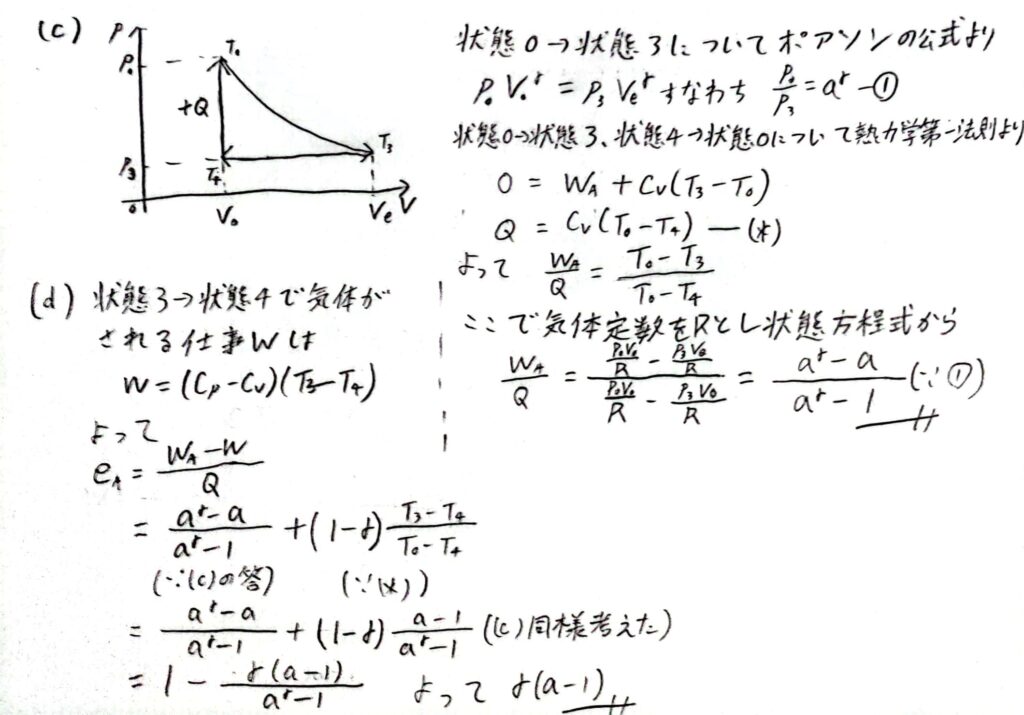 (c)
P
P₀
P₃
0
V₀
Vₑ
V
T₀
+Q
T₃
T₄
状態0→状態3についてポアソンの公式より
P₀V₀^γ = P₃Vₑ^γ すなわち P₀/P₃ = a^γ —①
状態0→状態3、状態4→状態0について熱力学第一法則より
0 = W_A + Cv(T₃−T₀)
Q = Cv(T₀−T₄) —(*)
よって W_A/Q = (T₀−T₃)/(T₀−T₄)
ここで気体定数をRとし状態方程式から
W_A/Q = (P₀V₀/R − P₃Vₑ/R)/(P₀V₀/R − P₃V₀/R) = (a^γ−a)/(a^γ−1) (∵①)
(d) 状態3→状態4で気体が
される仕事Wは
W = (Cp−Cv)(T₃−T₄)
よって
e_A = (W_A−W)/Q
= (a^γ−a)/(a^γ−1) + (1−γ)(T₃−T₄)/(T₀−T₄)
(∵(c)の答) (∵(*))
= (a^γ−a)/(a^γ−1) + (1−γ)(a−1)/(a^γ−1) ((c)同様考えた)
= 1 − γ(a−1)/(a^γ−1) よって γ(a−1)